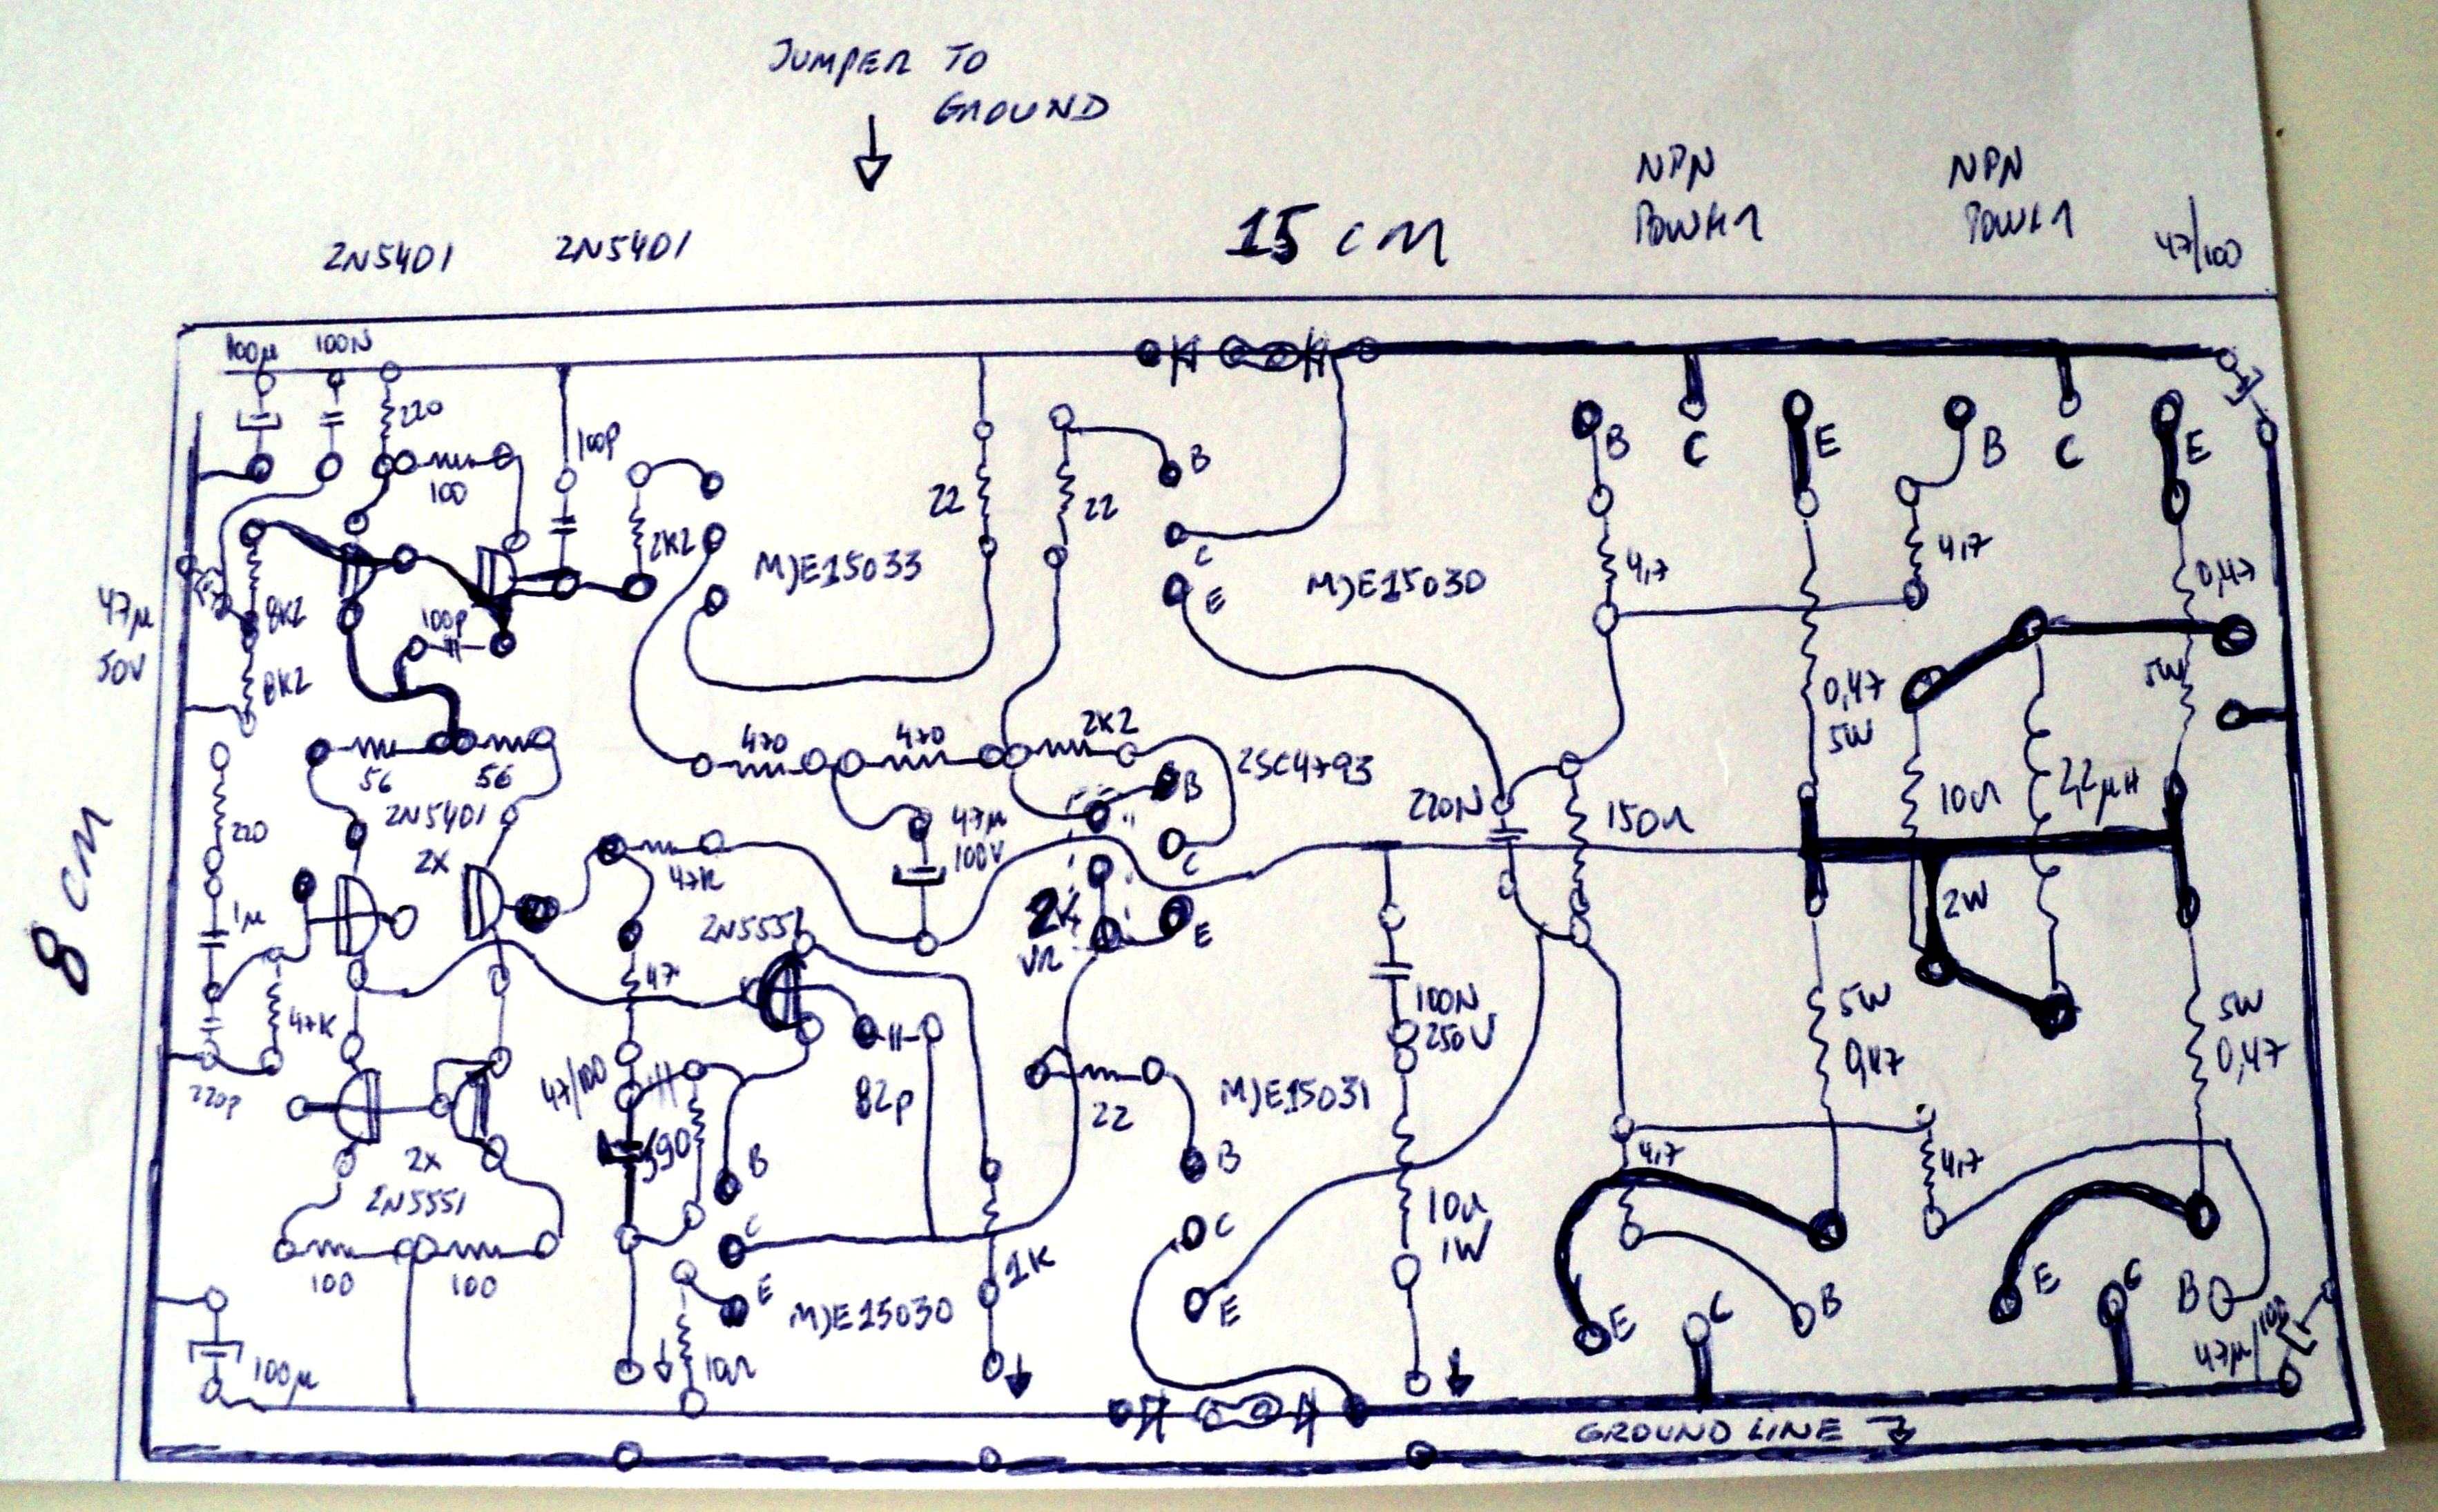 JUMPER TO
GROUND
2N5401
2N5401
15 cm
NPN
POWER
NPN
POWER
47/100
100µ
100N
220
100
100p
2K2
MJE15033
22
22
B
C
E
MJE15030
B
C
E
B
C
E
4,7
4,7
0,47
5W
47µ
50V
8K2
8K2
100p
56
56
2N5401
2X
470
470
2K2
2SC4793
B
C
E
47µ
100V
220N
150Ω
0,47
5W
10Ω
2W
2,2µH
8 cm
220
1µ
47K
220p
47K
47
2N5551
2K
VR
82p
47/100
390
22
MJE15031
B
C
E
100N
250V
10Ω
1W
5W
0,47
5W
0,47
4,7
4,7
2X
2N5551
100
100
B
C
E
MJE15030
1K
10Ω
100µ
E
C
B
E
C
B
47µ/100
GROUND LINE